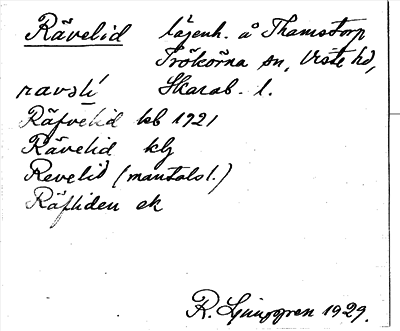 Rävelid lägenh. å Thamstorp
Trökörna sn, Viste hd,
ravslí Skarab. l.
Räfvelid kb 1921
Rävelid klj
Revelid (mantalsl.)
Räfliden ek
R. Ljunggren 1929.